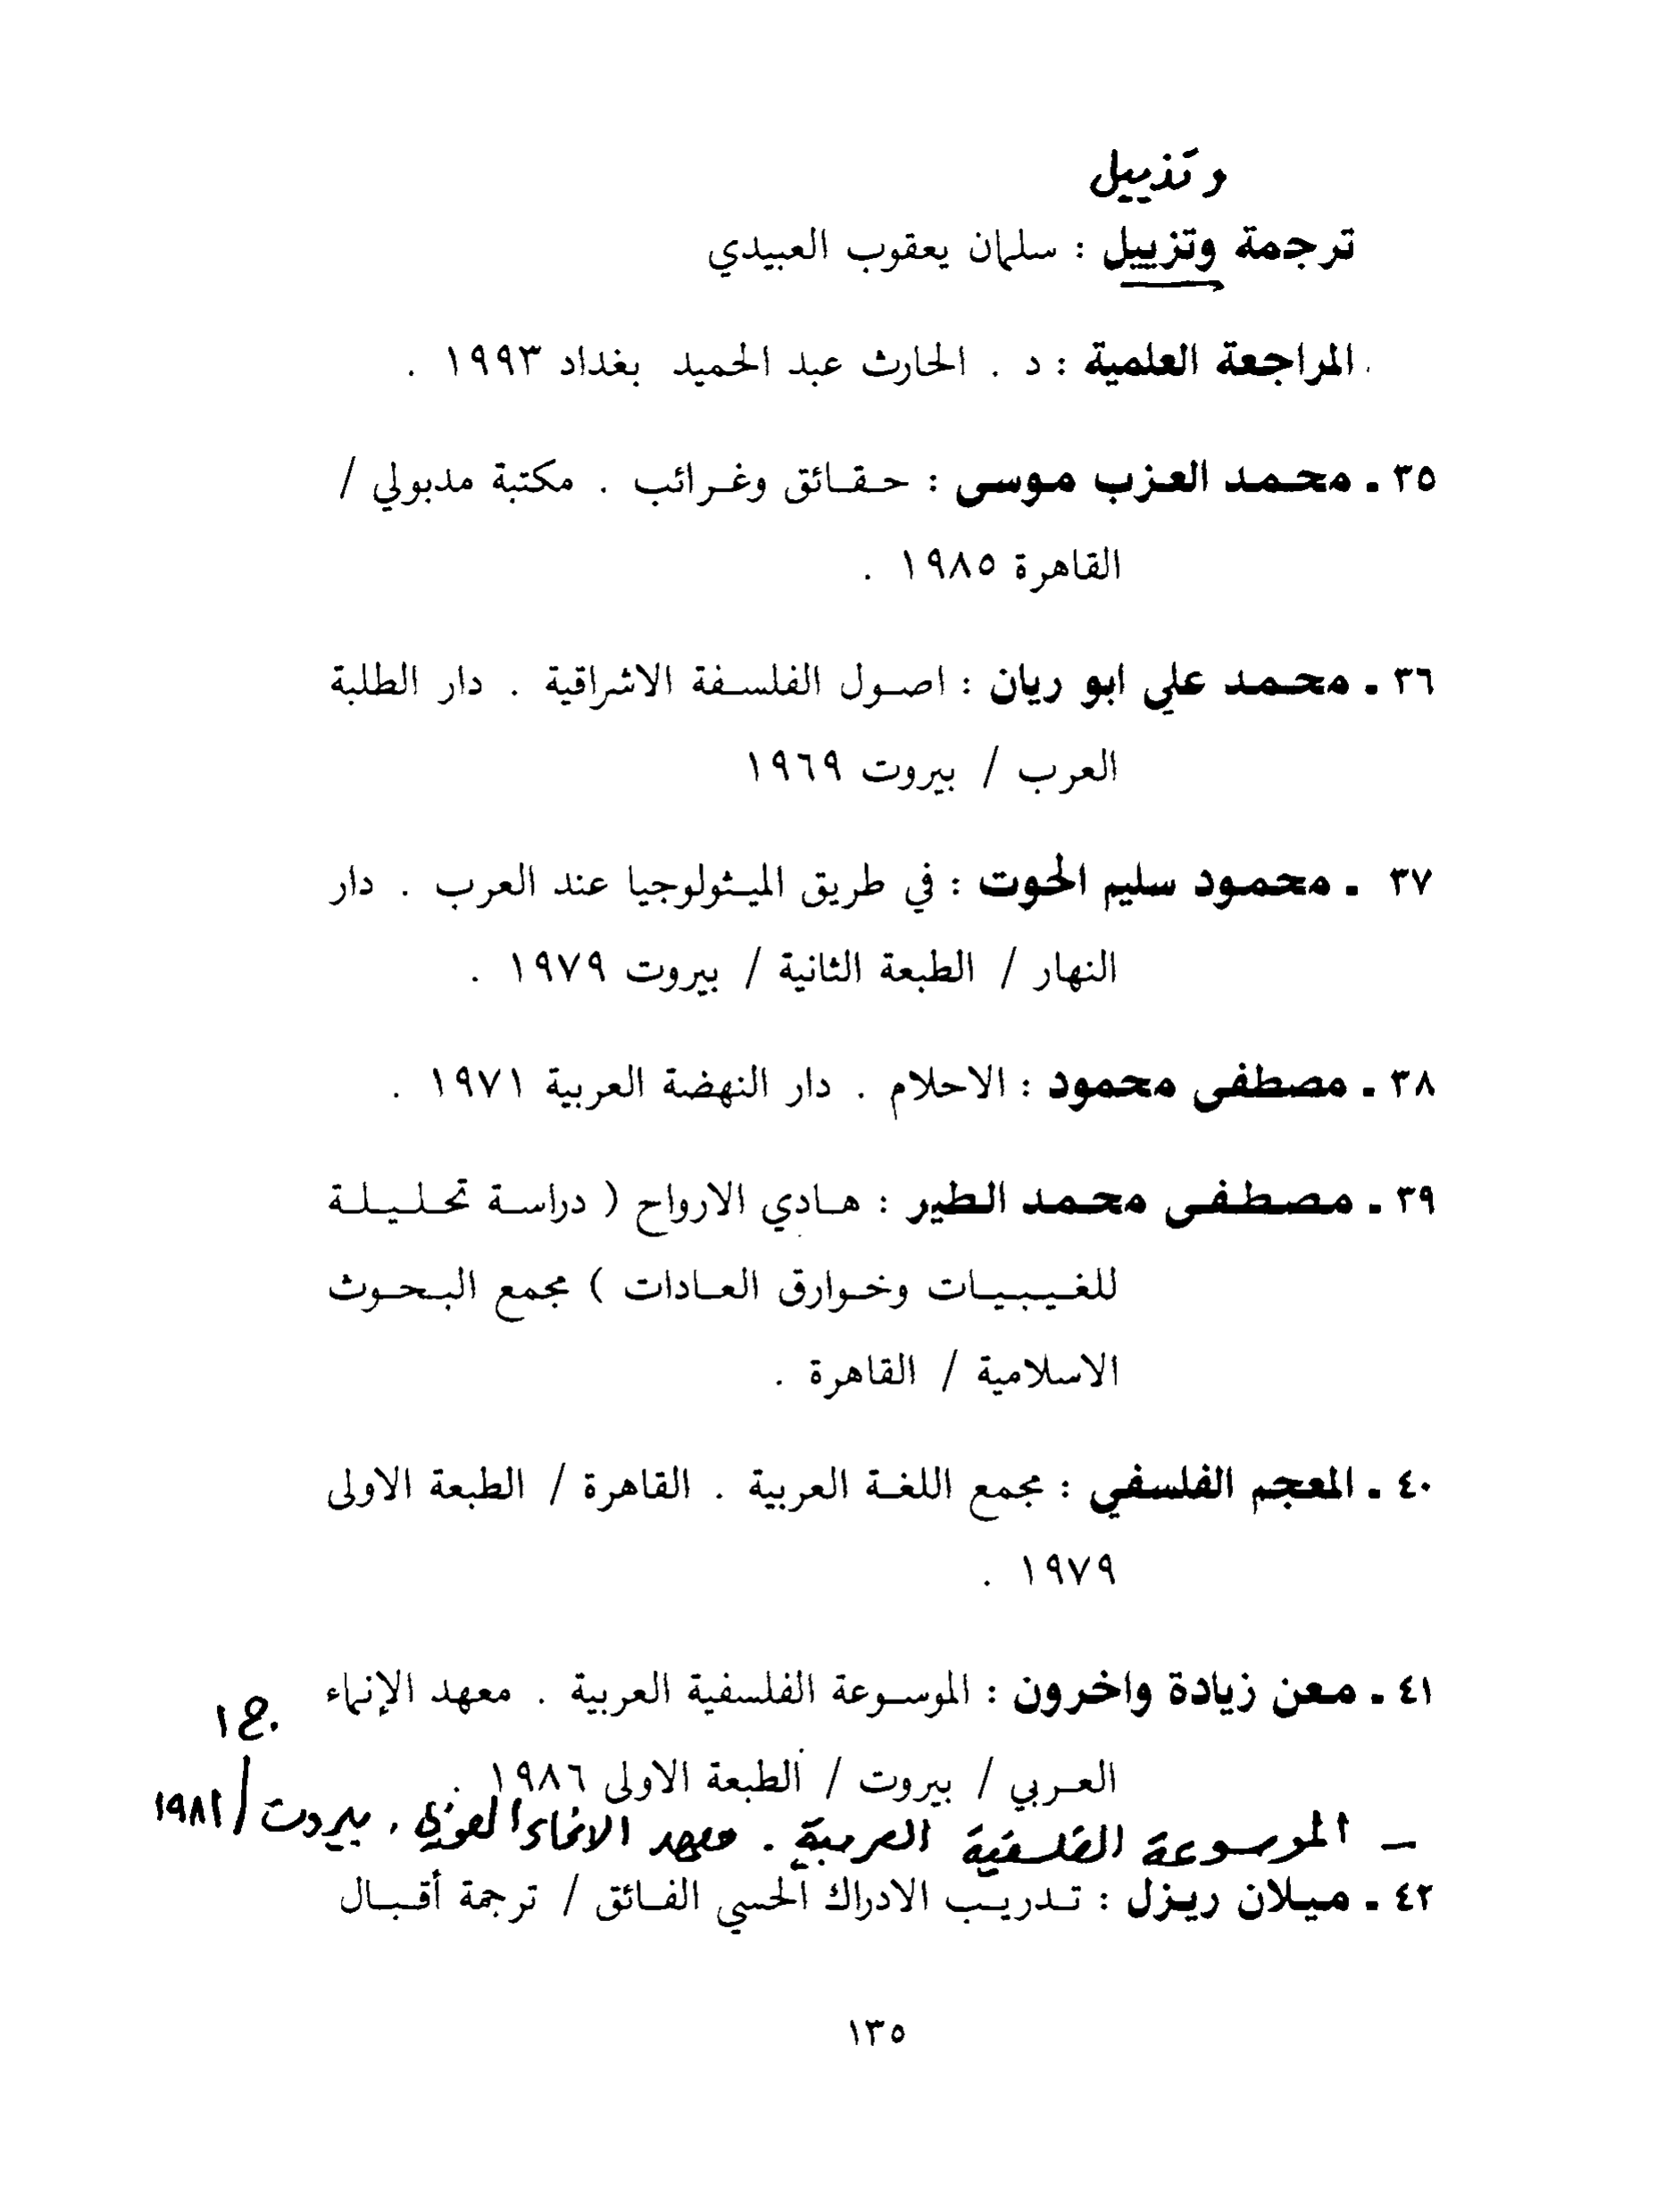 وتذييل
ترجمة وتزييل : سلمان يعقوب العبيدي
المراجعة العلمية : د . الحارث عبد الحميد بغداد ١٩٩٣ .
٣٥ ـ محمد العزب موسى : حقائق وغرائب . مكتبة مدبولي /
القاهرة ١٩٨٥ .
٣٦ ـ محمد علي ابو ريان : اصول الفلسفة الاشراقية . دار الطلبة
العرب / بيروت ١٩٦٩
٣٧ ـ محمود سليم الحوت : في طريق الميثولوجيا عند العرب . دار
النهار / الطبعة الثانية / بيروت ١٩٧٩ .
٣٨ ـ مصطفى محمود : الاحلام . دار النهضة العربية ١٩٧١ .
٣٩ ـ مصطفى محمد الطير : هادي الارواح ( دراسة تحليلة
للغيبيات وخوارق العادات ) مجمع البحوث
الاسلامية / القاهرة .
٤٠ ـ المعجم الفلسفي : مجمع اللغة العربية . القاهرة / الطبعة الاولى
١٩٧٩ .
٤١ ـ معن زيادة واخرون : الموسوعة الفلسفية العربية . معهد الإنماء
العربي / بيروت / الطبعة الاولى ١٩٨٦ .
ـ الموسوعة الفلسفية العربية . معهد الانماء العربي . بيروت / ١٩٨٦
٤٢ ـ ميلان ريزل : تدريب الادراك الحسي الفائق / ترجمة أقبال
١٣٥